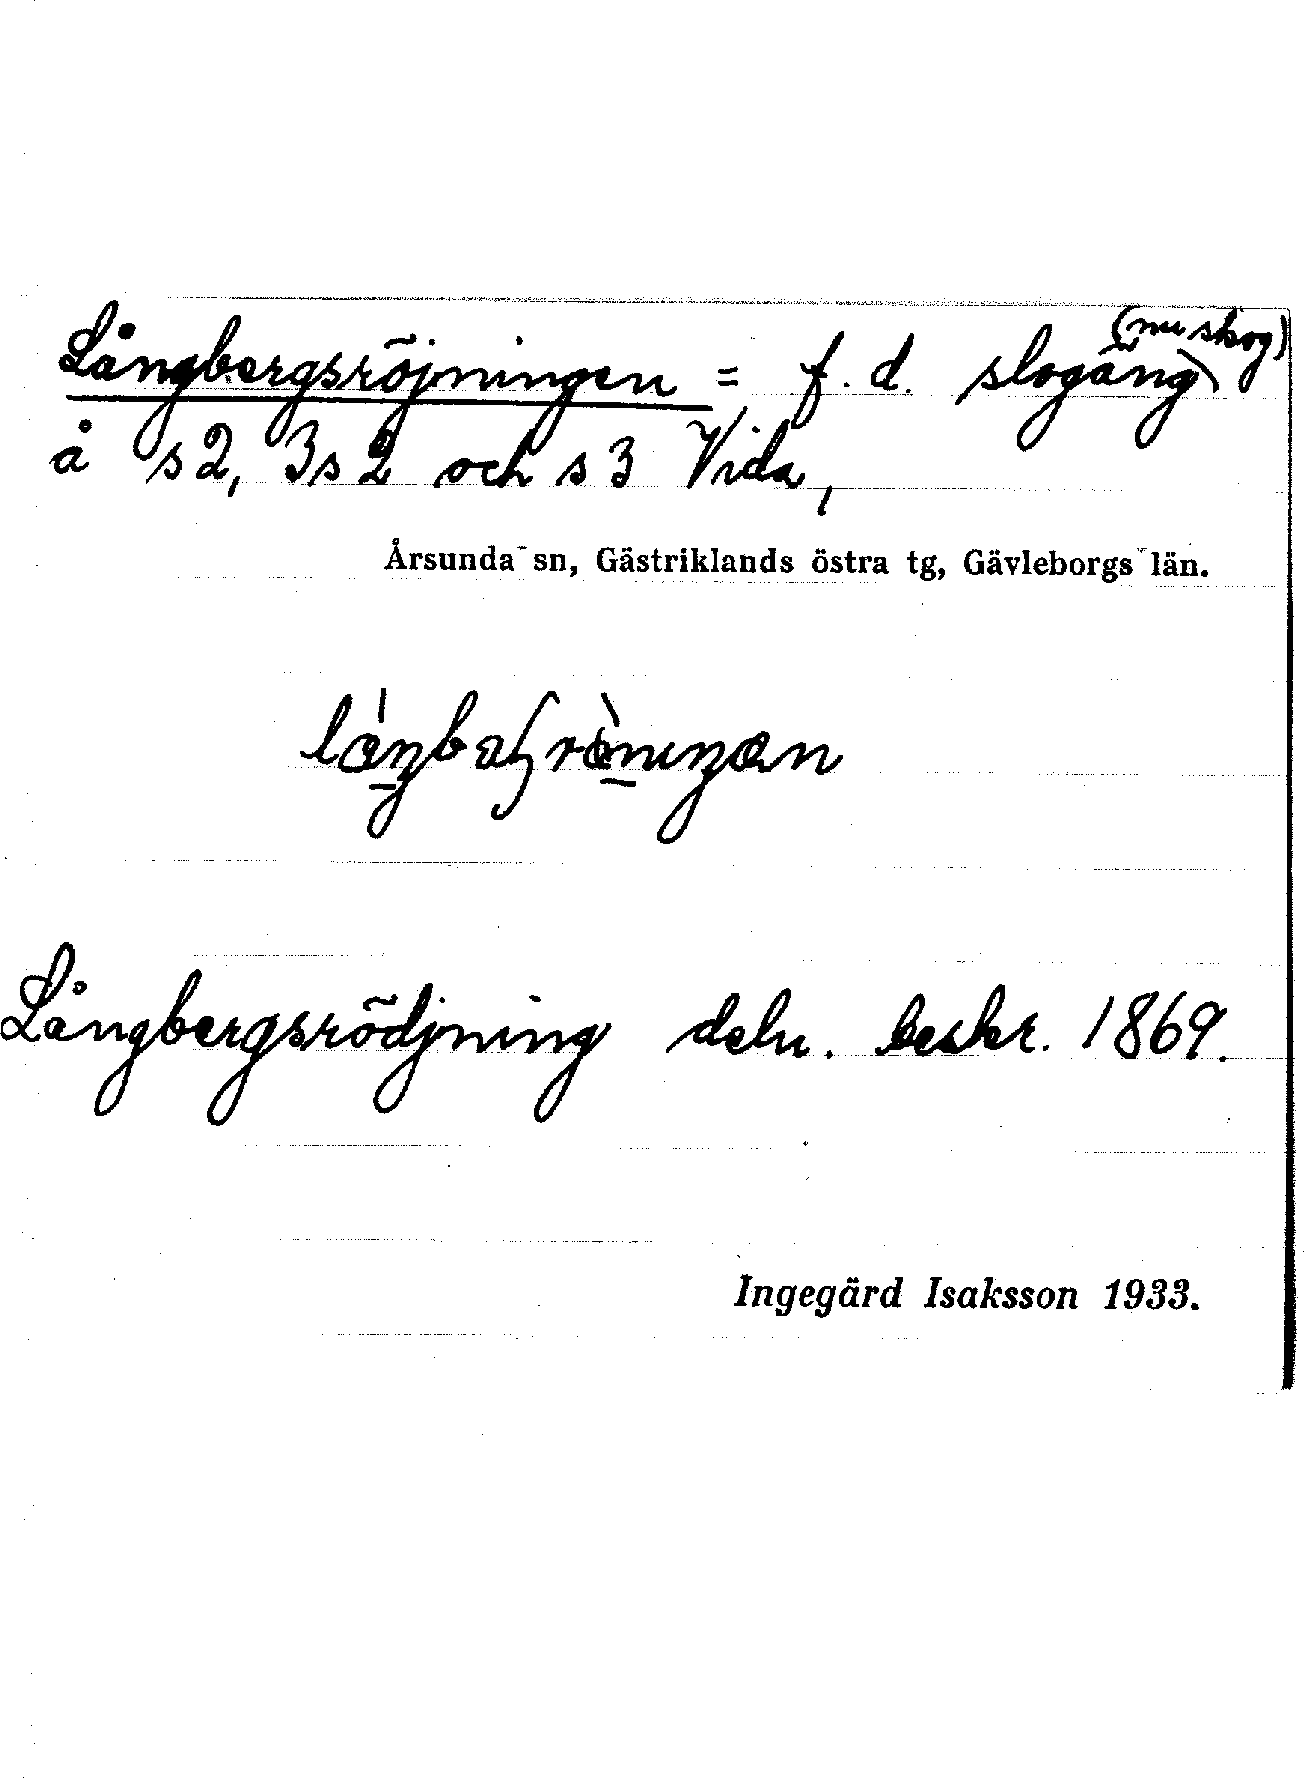 Långbergsröjningen = f. d. slogäng (nu skog)
å s2, 3s2 och s3 Vida,
Årsunda sn, Gästriklands östra tg, Gävleborgs län.
Långbergsrödjning deln. beskr. 1869.
Ingegärd Isaksson 1933.